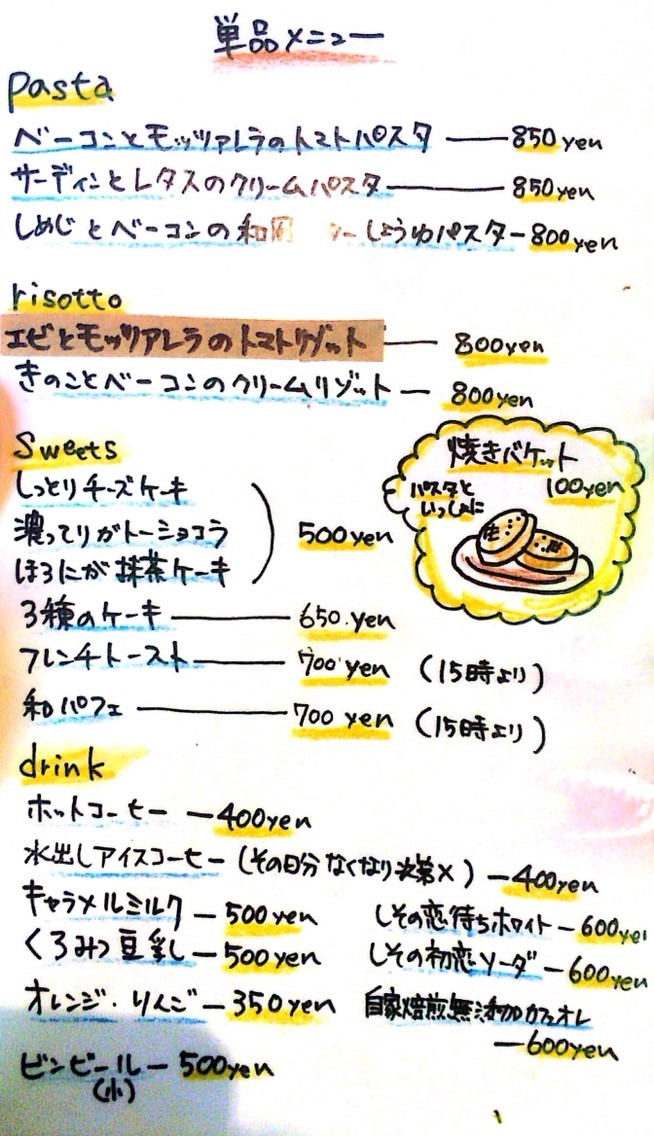 単品メニュー
pasta
ベーコンとモッツァレラのトマトパスタ — 850yen
サーディンとレタスのクリームパスタ — 850yen
しめじとベーコンの和風 ターしょうゆパスタ — 800yen
risotto
エビとモッツアレラのトマトリゾット — 800yen
きのことベーコンのクリームリゾット — 800yen
焼きバケット
100yen
パスタと
いっしょに
Sweets
しっとりチーズケーキ
濃ってりガトーショコラ 500yen
ほろにが抹茶ケーキ
3種のケーキ — 650.yen
フレンチトースト — 700yen (15時より)
和パフェ — 700 yen (15時より)
drink
ホットコーヒー — 400yen
水出しアイスコーヒー (その日分なくなり次第×) — 400yen
キャラメルミルク — 500yen
しその恋待ちホワイト — 600yen
くろみつ豆乳 — 500yen
しその初恋ソーダ — 600yen
オレンジ・りんご — 350yen
自家焙煎無添加カフェオレ
— 600yen
ビンビール — 500yen
(小)